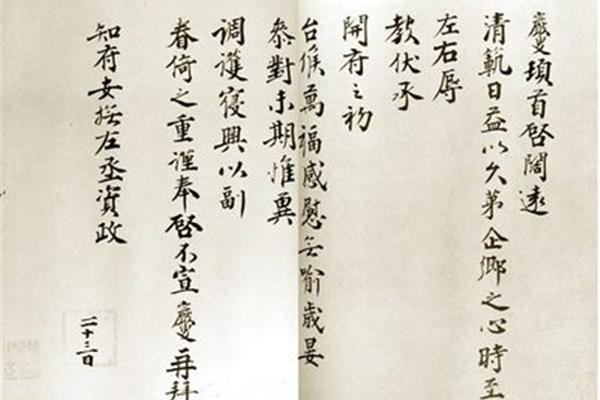 頓首啓闊遠
清範日益以久第企鄉之心時至
左右辱
教伏承
開府之初
台候萬福感慰無喻歲晏
參對未期惟冀
調護寢興以副
眷倚之重謹奉啓不宣再拜
知府安撫左丞資政
二十三日